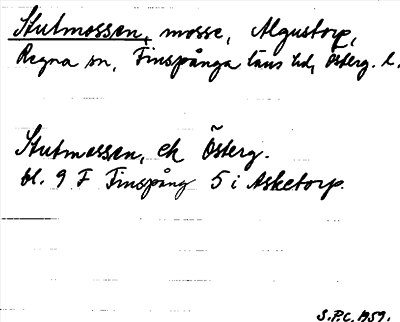 Stutmossen, mosse, Algustorp,
Regna sn, Finspånga läns hd, Österg. l.
Stutmossen, ek Österg.
bl. 9 F Finspång 5 i Asketorp.
S.P.C. 1959.